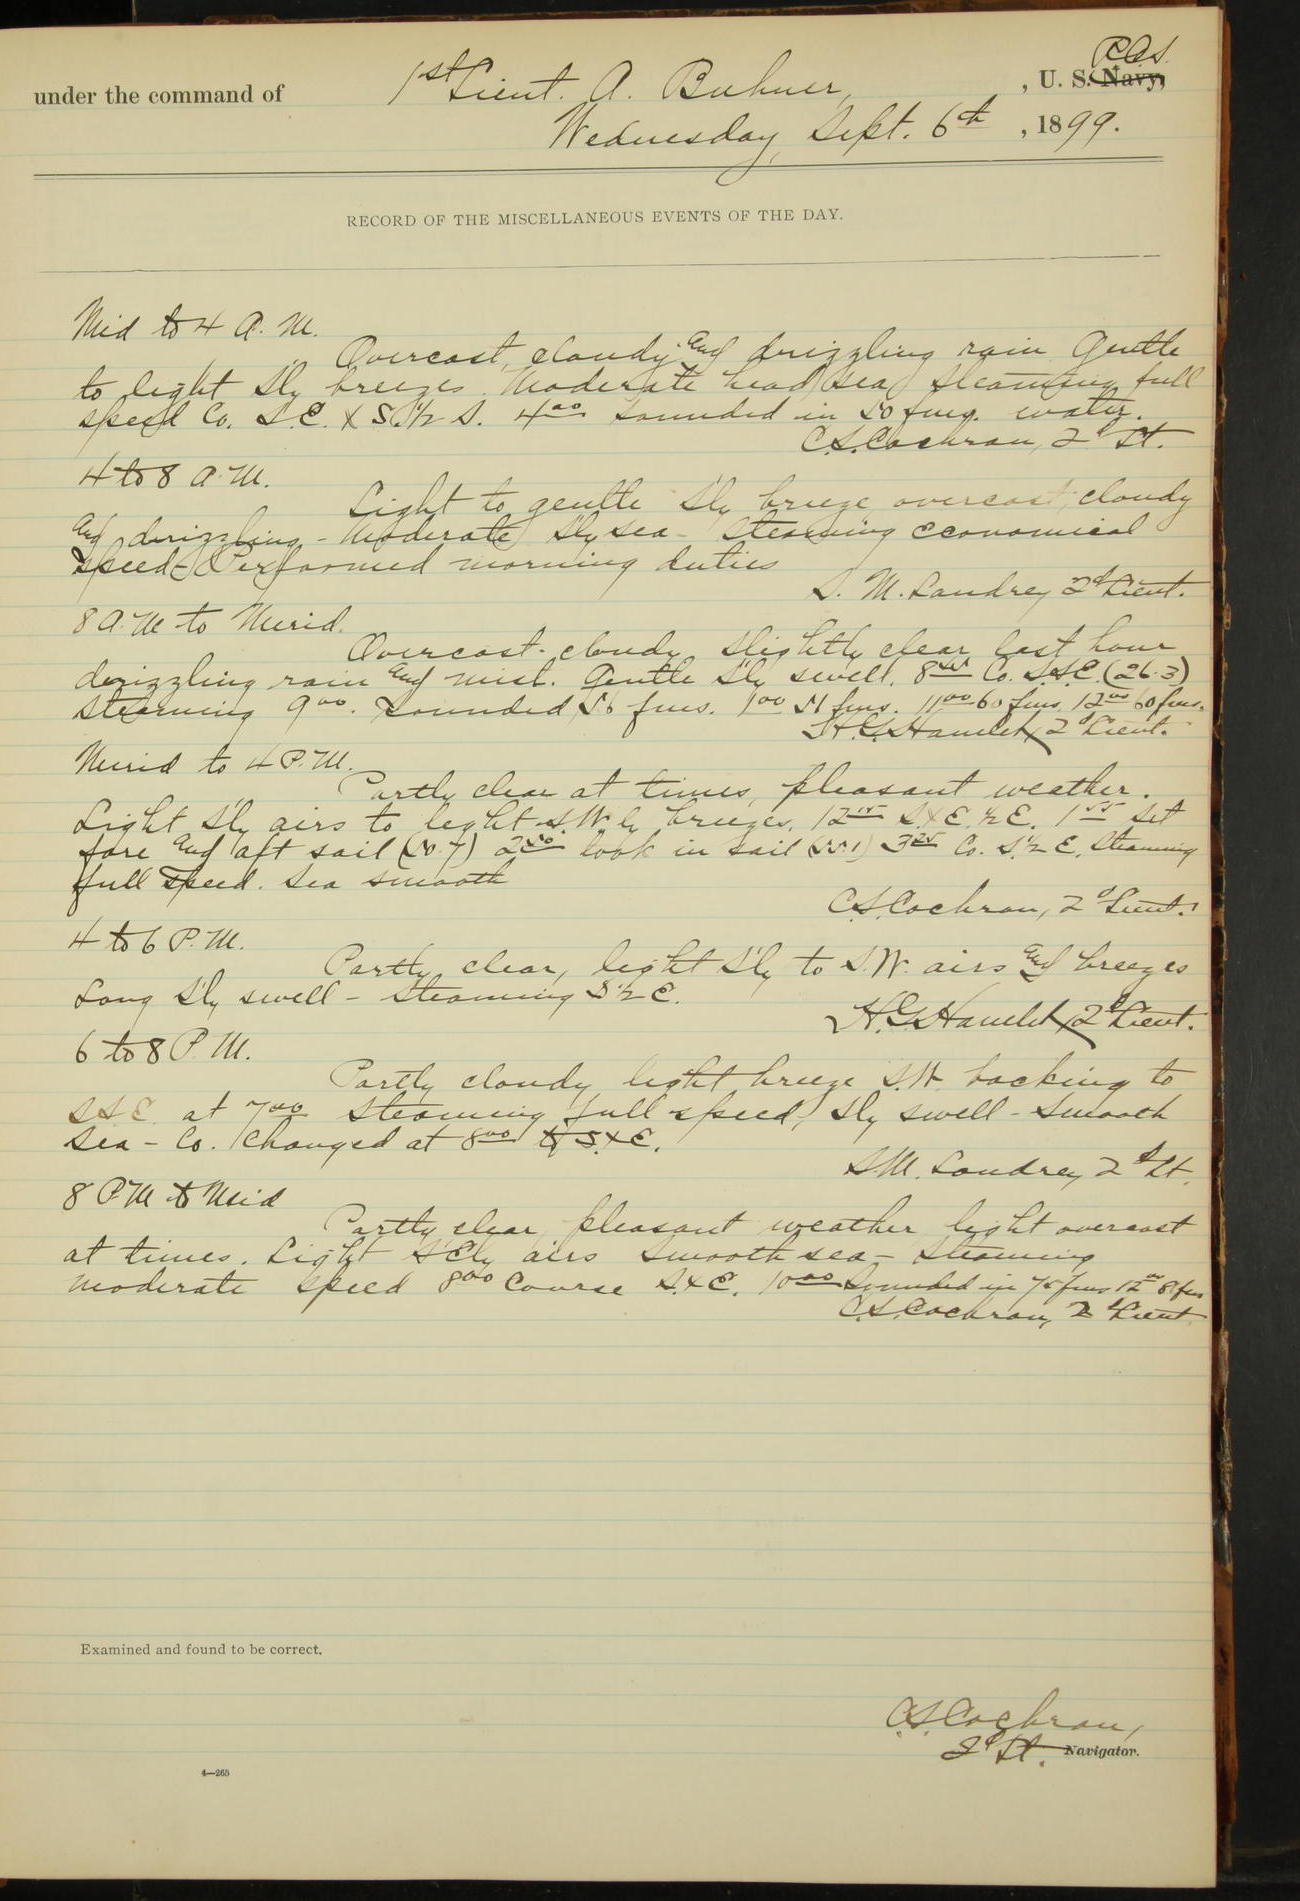 under the command of 1st Lieut. A. Buhner, , U. S. R.C.S. Navy,
Wednesday, Sept. 6th , 1899.
RECORD OF THE MISCELLANEOUS EVENTS OF THE DAY.
Mid to 4 A. M.
Overcast, cloudy and drizzling rain Gentle
to light S'ly breezes. Moderate head sea, steaming full
speed Co. S.E. x S. 1/2 S. 4 00 Sounded in 50 fms. water.
C.S. Cochran, 2d Lt.
4 to 8 A. M.
Light to gentle S'ly breeze overcast cloudy
and drizzling - Moderate S'ly sea - Steaming economical
speed - Performed morning duties
S. M. Landrey 2d Lieut.
8 A. M to Merid.
Overcast - cloudy slightly clear last hour
drizzling rain and mist. Gentle S'ly swell. Co. S.S.E. (26.3)
Steaming 9 00. Sounded 56 fms. 1 00 51 fms. 11 00 60 fms. 12 00 60 fms.
H.G. Hamlet, 2d Lieut.
Merid to 4 P. M.
Partly clear at times, pleasant weather.
Light S'ly airs to light S.W'ly breezes. 12 15 S.x E. 1/2 E. 1 55 Set
fore and aft sail (50.7) 2 50 took in sail (55.1) 3 25 Co. S. 1/2 E. Steaming
full speed. Sea smooth
C.S. Cochran, 2d Lieut.
4 to 6 P. M.
Partly clear, light S'ly to S.W. airs and breezes
Long S'ly swell - Steaming S 1/2 E.
H.G. Hamlet, 2d Lieut.
6 to 8 P. M.
Partly cloudy light breeze S.W. backing to
SSE at 7 00 Steaming full speed, S'ly swell - Smooth
Sea - Co. Changed at 8 00 to S.x E.
S.M. Landrey 2d Lt.
8 P. M to Mid
Partly clear pleasant weather light overcast
at times. Light SE'ly airs Smooth sea - Steaming
moderate speed 8 00 Course S.x E. 10 00 Sounded in 75 fms 12 00 81 fms
C.S. Cochran, 2d Lieut.
Examined and found to be correct.
C.S. Cochran,
2d Lt. Navigator.
4—265